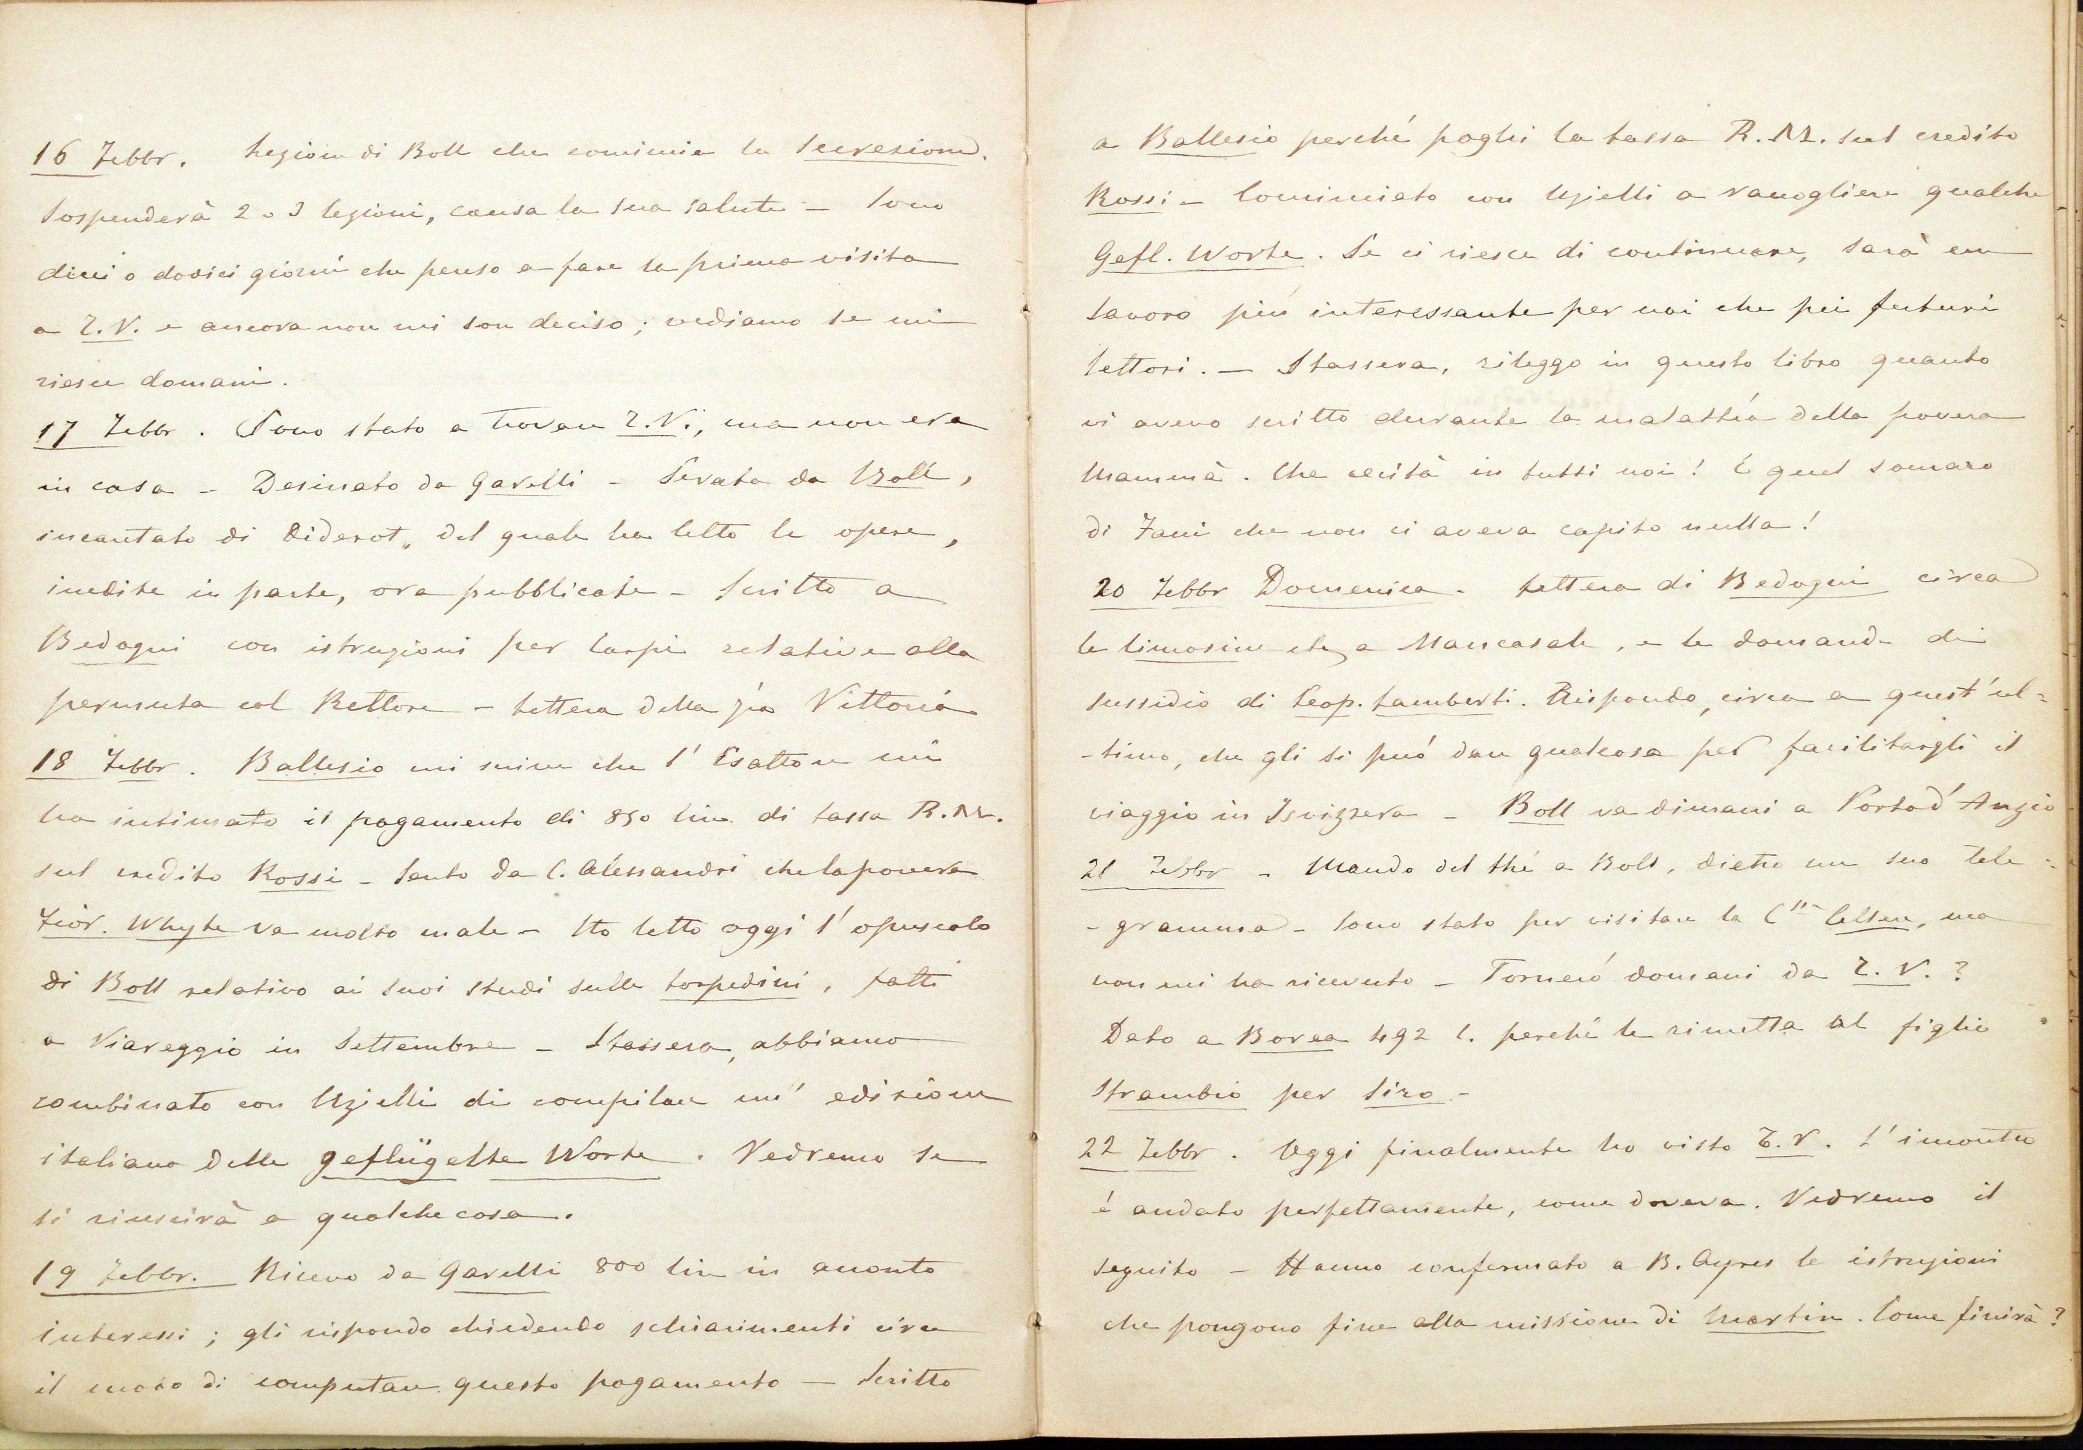 16 Febbr. Lezione di Boll che comincia la Secrezione.
Sospenderà 2 o 3 lezioni, causa la sua salute — Sono
dieci o dodici giorni che penso a fare la prima visita
a Z. V. e ancora non mi son deciso; vediamo se mi
riesce domani.
17 Febbr. Sono stato a trovare Z. V., ma non era
in casa — Desinato da Garelli — Serata da Boll,
incantato di Diderot, del quale ha letto le opere,
inedite in parte, ora pubblicate — Scritto a
Bedogni con istruzioni per Carpi relative alla
permuta col Rettore — Lettera della zia Vittoria
18 Febbr. Ballesio mi scrive che l'Esattore mi
ha intimato il pagamento di 850 lire di tassa R. M.
sul credito Rossi — Sento da C. Alessandri che la povera
Fior. Whyte va molto male — Ho letto oggi l'opuscolo
di Boll relativo ai suoi studi sulle torpedini, fatti
a Viareggio in Settembre — Stassera, abbiamo
combinato con Uzielli di compilare un' edizione
italiana delle geflügelte Worte. Vedremo se
si riuscirà a qualche cosa.
19 Febbr. Ricevo da Garelli 800 lire in acconto
interessi; gli rispondo chiedendo schiarimenti circa
il modo di computare questo pagamento — Scritto
a Ballesio perché paghi la tassa R. M. sul credito
Rossi — Cominciato con Uzielli a raccogliere qualche
Gefl. Worte. Se ci riesce di continuare, sarà un
lavoro più interessante per noi che pei futuri
lettori. — Stassera, rileggo in questo libro quanto
vi avevo scritto durante la malattia della povera
Mammà. Che cecità in tutti noi! E quel somaro
di Fani che non ci aveva capito nulla!
20 Febbr Domenica — Lettera di Bedogni circa
le limosine etc a Mancasale, e le domande di
sussidio di Leop. Lamberti. Rispondo, circa a quest'ul=
-timo, che gli si può dare qualcosa per facilitargli il
viaggio in Isvizzera — Boll va dimani a Porto d'Anzio
21 Febbr — Mando del thé a Boll, dietro un suo tele-
-gramma — Sono stato per visitare la C.ssa Celsen, ma
non mi ha ricevuto — Tornerò domani da Z. V.?
Dato a Borea 492 l. perché le rimetta al figlio
Strambio per Siro —
22 Febbr. Oggi finalmente ho visto Z. V. L'incontro
é andato perfettamente, come doveva. Vedremo il
seguito — Hanno confermato a B. Ayres le istruzioni
che pongono fine alla missione di Martin. Come finirà?